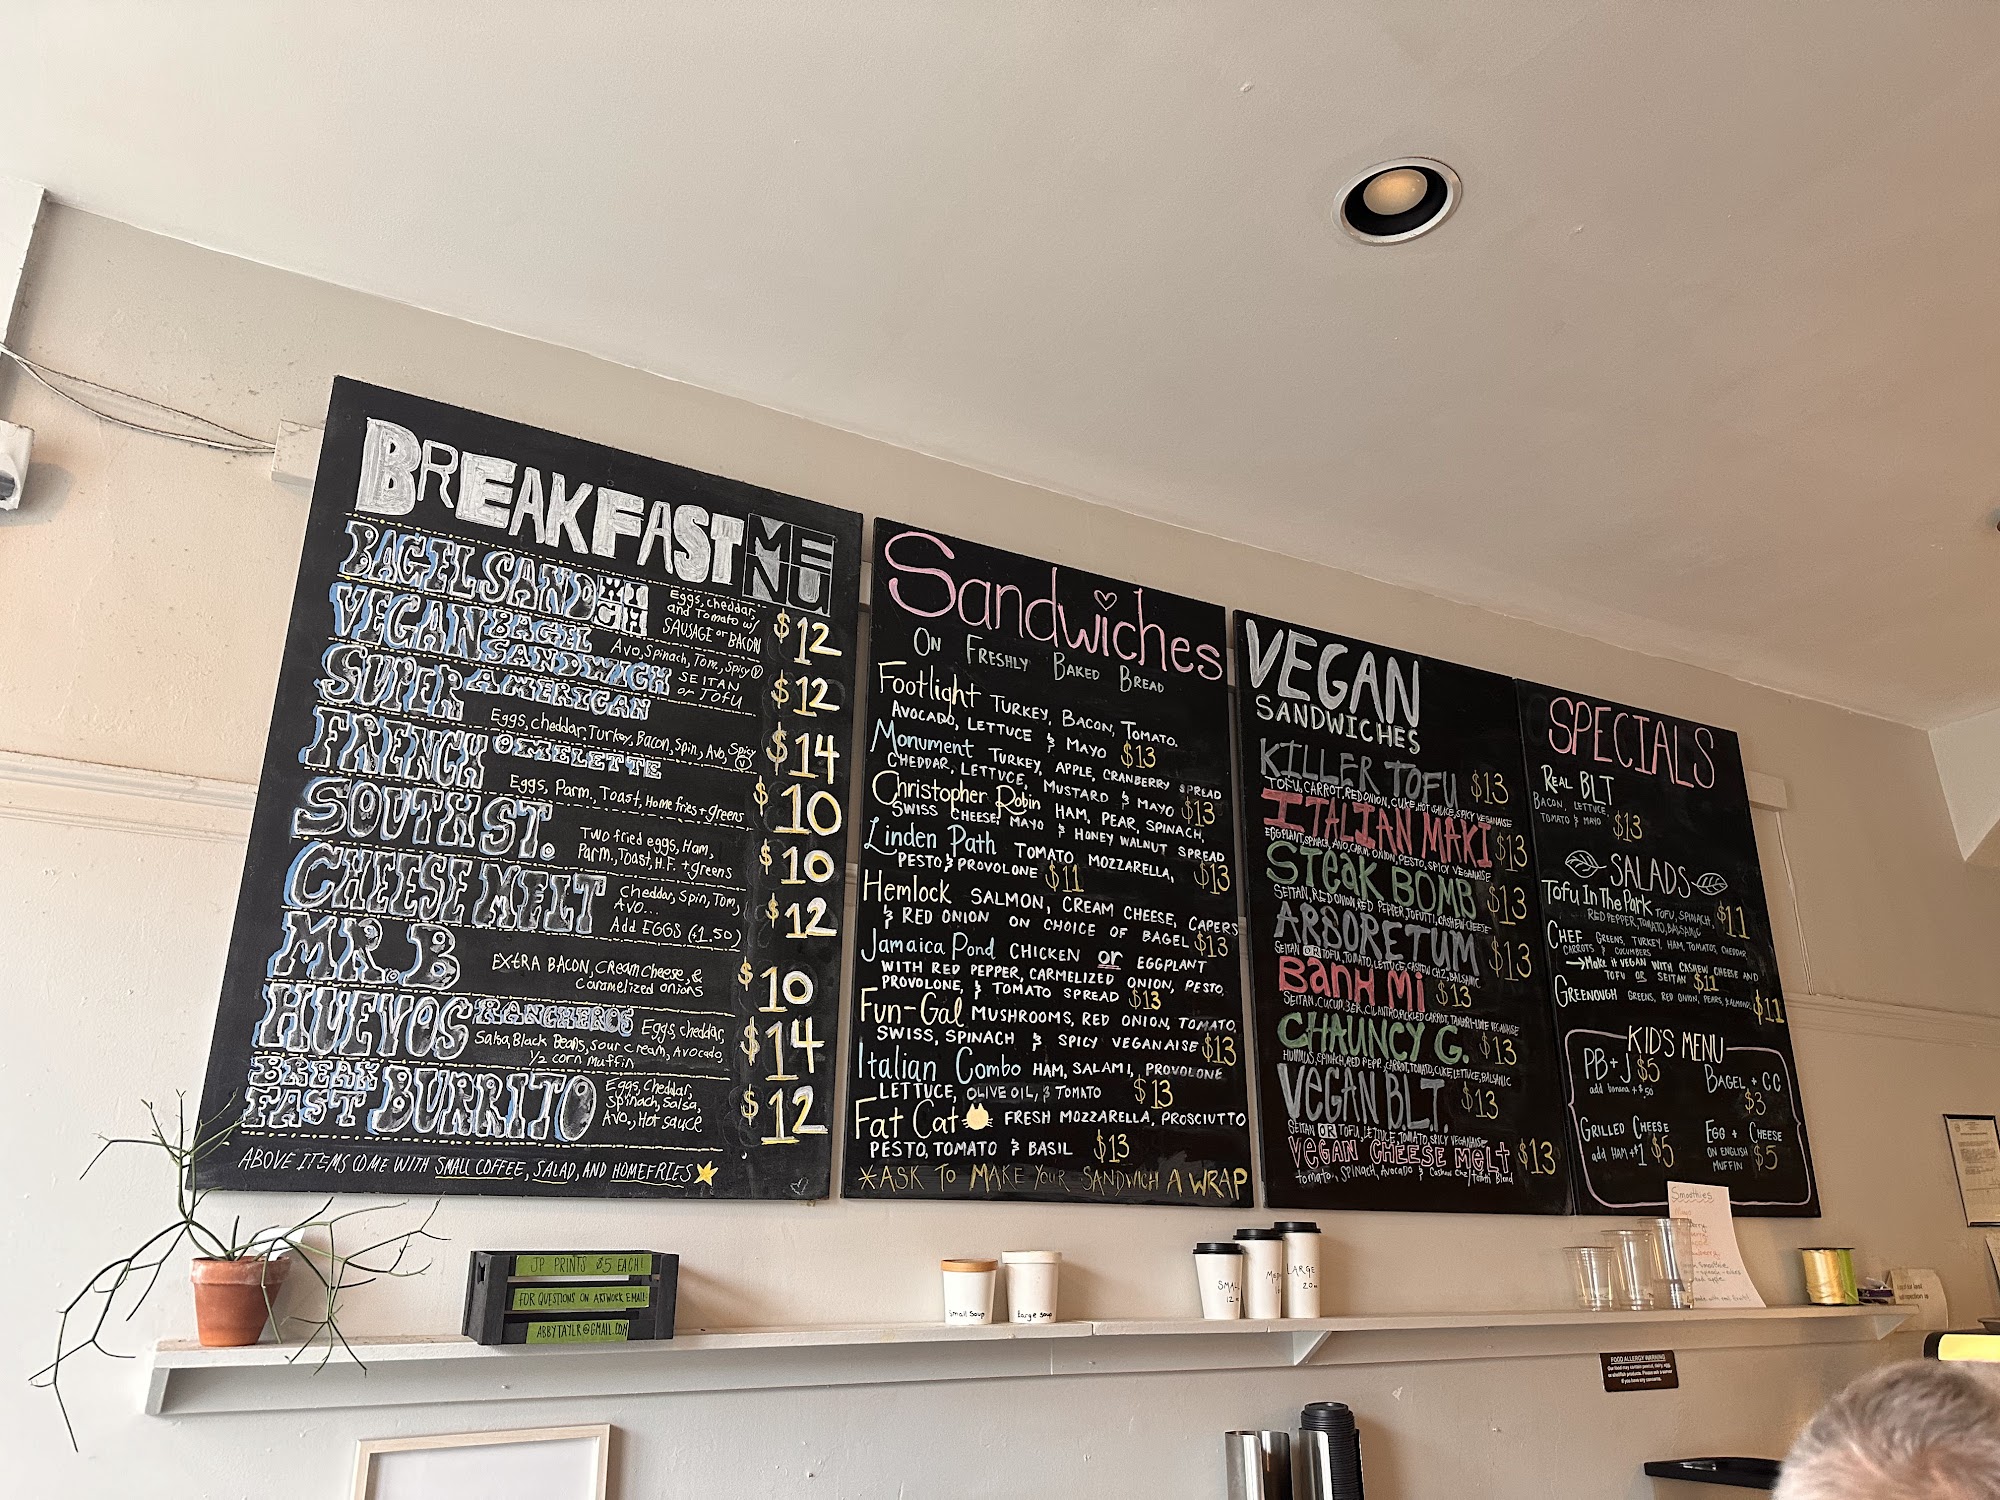 BREAKFAST MENU
BAGEL SANDWICH
Eggs, cheddar,
and Tomato w/
SAUSAGE or BACON
$12
VEGAN BAGEL SANDWICH
Avo, Spinach, Tom., Spicy V
SEITAN
or TOFU
$12
SUPER AMERICAN
Eggs, cheddar, Turkey, Bacon, Spin, Avo, Spicy V
$14
FRENCH OMELETTE
Eggs, Parm., Toast, Home fries + greens
$10
SOUTH ST.
Two fried eggs, Ham,
Parm., Toast, H.F. + greens
$10
CHEESE MELT
Cheddar, Spin, Tom,
AVO...
Add EGGS (+1.50)
$12
MR. B
EXTRA BACON, CREAM CHEESE, &
Caramelized onions
$10
HUEVOS RANCHEROS
Eggs, cheddar,
Salsa, Black Beans, sour cream, Avocado,
1/2 corn muffin
$14
BREAKFAST BURRITO
Eggs, Cheddar,
Spinach, Salsa,
Avo., Hot sauce
$12
ABOVE ITEMS COME WITH SMALL COFFEE, SALAD, AND HOMEFRIES
Sandwiches
ON FRESHLY BAKED BREAD
Footlight TURKEY, BACON, TOMATO,
AVOCADO, LETTUCE & MAYO $13
Monument TURKEY, APPLE, CRANBERRY SPREAD
CHEDDAR, LETTUCE, MUSTARD & MAYO $13
Christopher Robin HAM, PEAR, SPINACH,
SWISS CHEESE, MAYO & HONEY WALNUT SPREAD
$13
Linden Path TOMATO, MOZZARELLA,
PESTO & PROVOLONE $11
Hemlock SALMON, CREAM CHEESE, CAPERS
& RED ONION ON CHOICE OF BAGEL $13
Jamaica Pond CHICKEN or EGGPLANT
WITH RED PEPPER, CARMELIZED ONION, PESTO,
PROVOLONE, & TOMATO SPREAD $13
Fun-Gal MUSHROOMS, RED ONION, TOMATO,
SWISS, SPINACH & SPICY VEGANAISE $13
Italian Combo HAM, SALAMI, PROVOLONE
LETTUCE, OLIVE OIL, & TOMATO $13
Fat Cat FRESH MOZZARELLA, PROSCIUTTO
PESTO, TOMATO & BASIL $13
*ASK TO MAKE YOUR SANDWICH A WRAP
VEGAN
SANDWICHES
KILLER TOFU $13
TOFU, CARROT, RED ONION, CUKE, HOT SAUCE, SPICY VEGANAISE
ITALIAN MAKI $13
EGGPLANT, SPINACH, AVO, CARM. ONION, PESTO, SPICY VEGANAISE
STEAK BOMB $13
SEITAN, RED ONION, RED PEPPER, TOFUTTI, CASHEW CHEESE
ARBORETUM $13
SEITAN OR TOFU, TOMATO, LETTUCE, CASHEW CHZ, BALSAMIC
BANH MI $13
SEITAN, CUCUMBER, CILANTRO, PICKLED CARROT, TAMARI-LIME VEGANAISE
CHAUNCY G. $13
HUMMUS, SPINACH, RED PEPP., CARROT, TOMATO, CUKE, LETTUCE, BALSAMIC
VEGAN B.L.T. $13
SEITAN OR TOFU, LETTUCE, TOMATO, SPICY VEGANAISE
VEGAN CHEESE MELT $13
tomato, Spinach, Avocado & Cashew Chz/tofutti Blend
SPECIALS
REAL BLT
BACON, LETTUCE,
TOMATO & MAYO $13
SALADS
TOFU IN THE PARK TOFU, SPINACH,
RED PEPPER, TOMATO, BALSAMIC $11
CHEF GREENS, TURKEY, HAM, TOMATOS, CHEDDAR
CARROTS & CUCUMBERS
→ MAKE it VEGAN WITH CASHEW CHEESE AND
TOFU OR SEITAN $11
GREENOUGH GREENS, RED ONION, PEARS, & ALMONDS $11
KID'S MENU
PB + J $5
add banana + $.50
BAGEL + CC
$3
GRILLED CHEESE
add HAM +$1 $5
EGG + CHEESE
ON ENGLISH
MUFFIN $5
JP PRINTS $5 EACH!
FOR QUESTIONS ON ARTWORK EMAIL:
ABBYTAYLR@GMAIL.COM
Small Soup
Large Soup
LARGE
20oz
Smoothies
FOOD ALLERGY WARNING